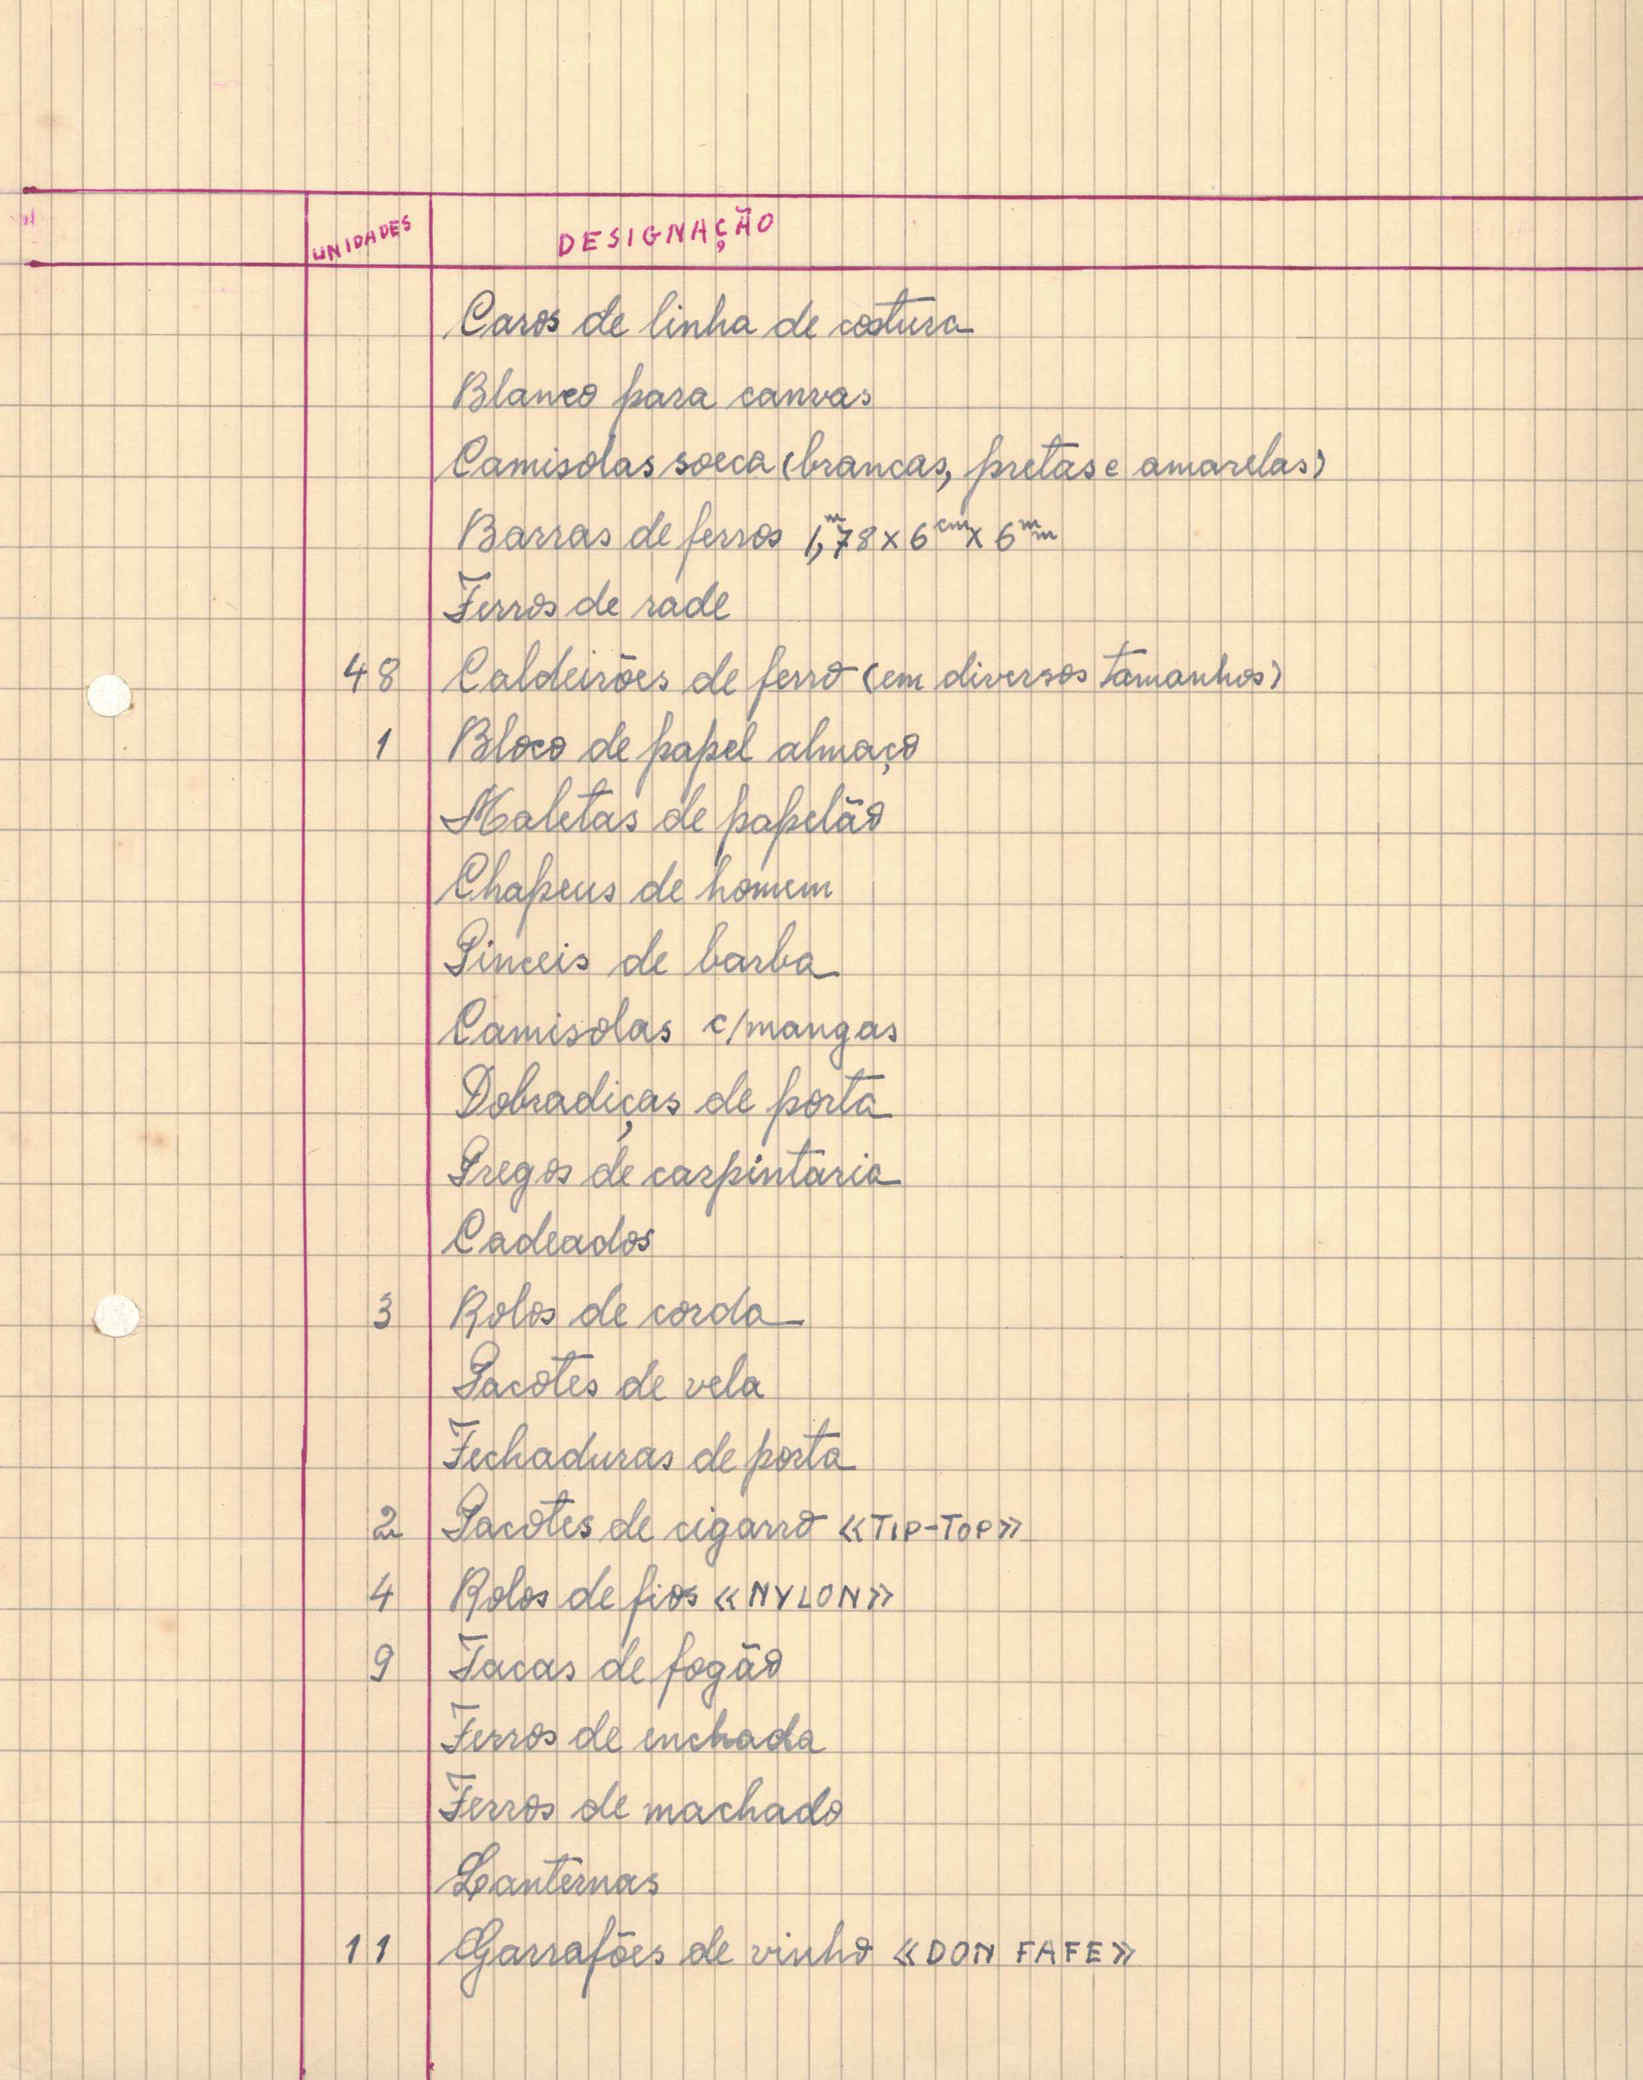 UNIDADES DESIGNAÇÃO
Caros de linha de costura
Blanco para canvas
Camisolas soeca (brancas, pretas e amarelas)
Barras de ferros 1,m78 x 6cm x 6mm
Ferros de rade
48 Caldeirões de ferro (em diversos tamanhos)
1 Bloco de papel almaço
Maletas de papelão
Chapeus de homem
Pinceis de barba
Camisolas c/mangas
Dobradiças de porta
Pregos de carpintaria
Cadeados
3 Rolos de corda
Pacotes de vela
Fechaduras de porta
2 Pacotes de cigarro «TIP-TOP»
4 Rolos de fios «NYLON»
9 Facas de fogão
Ferros de enchada
Ferros de machado
Lanternas
11 Garrafões de vinho «DON FAFE»